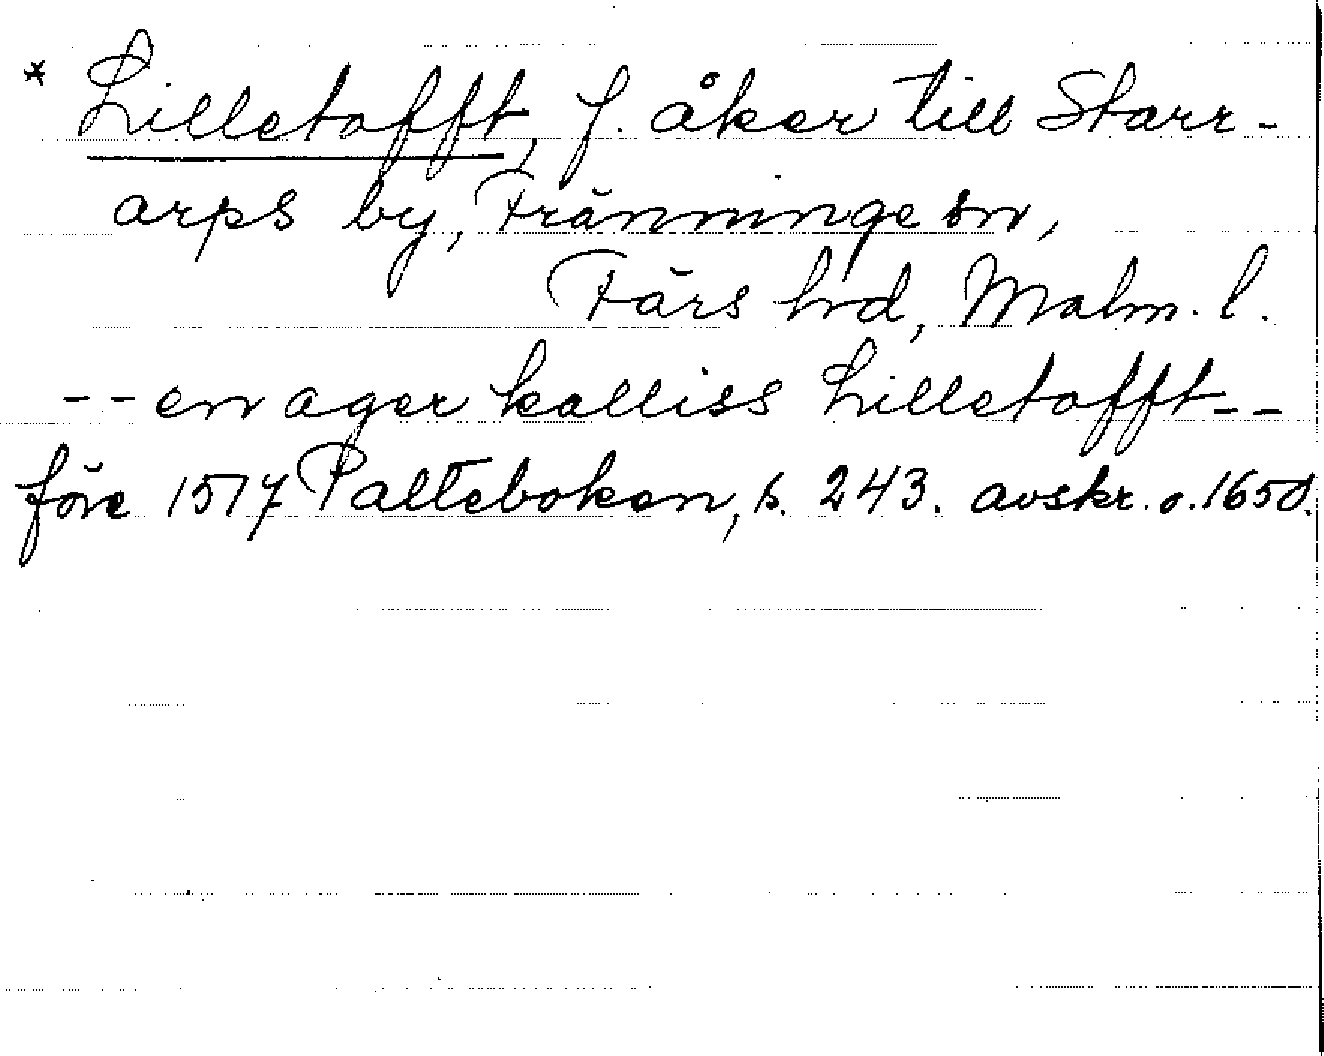 * Lilletofft, f. åker till Starr-
arps by, Fränninge sn,
Färs hd, Malm. l.
-- en ager kalliss Lilletofft --
före 1517 Palteboken, s. 243. avskr. o. 1650.